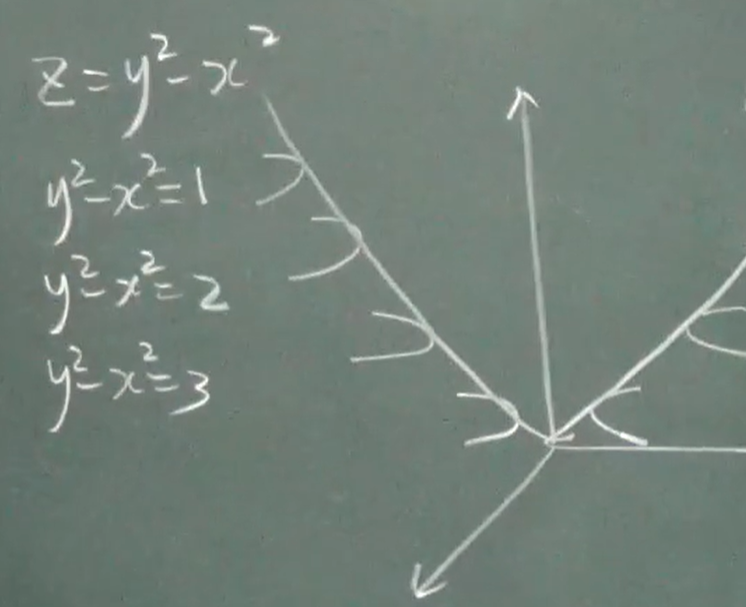 z = y² - x²
y² - x² = 1
y² - x² = 2
y² - x² = 3